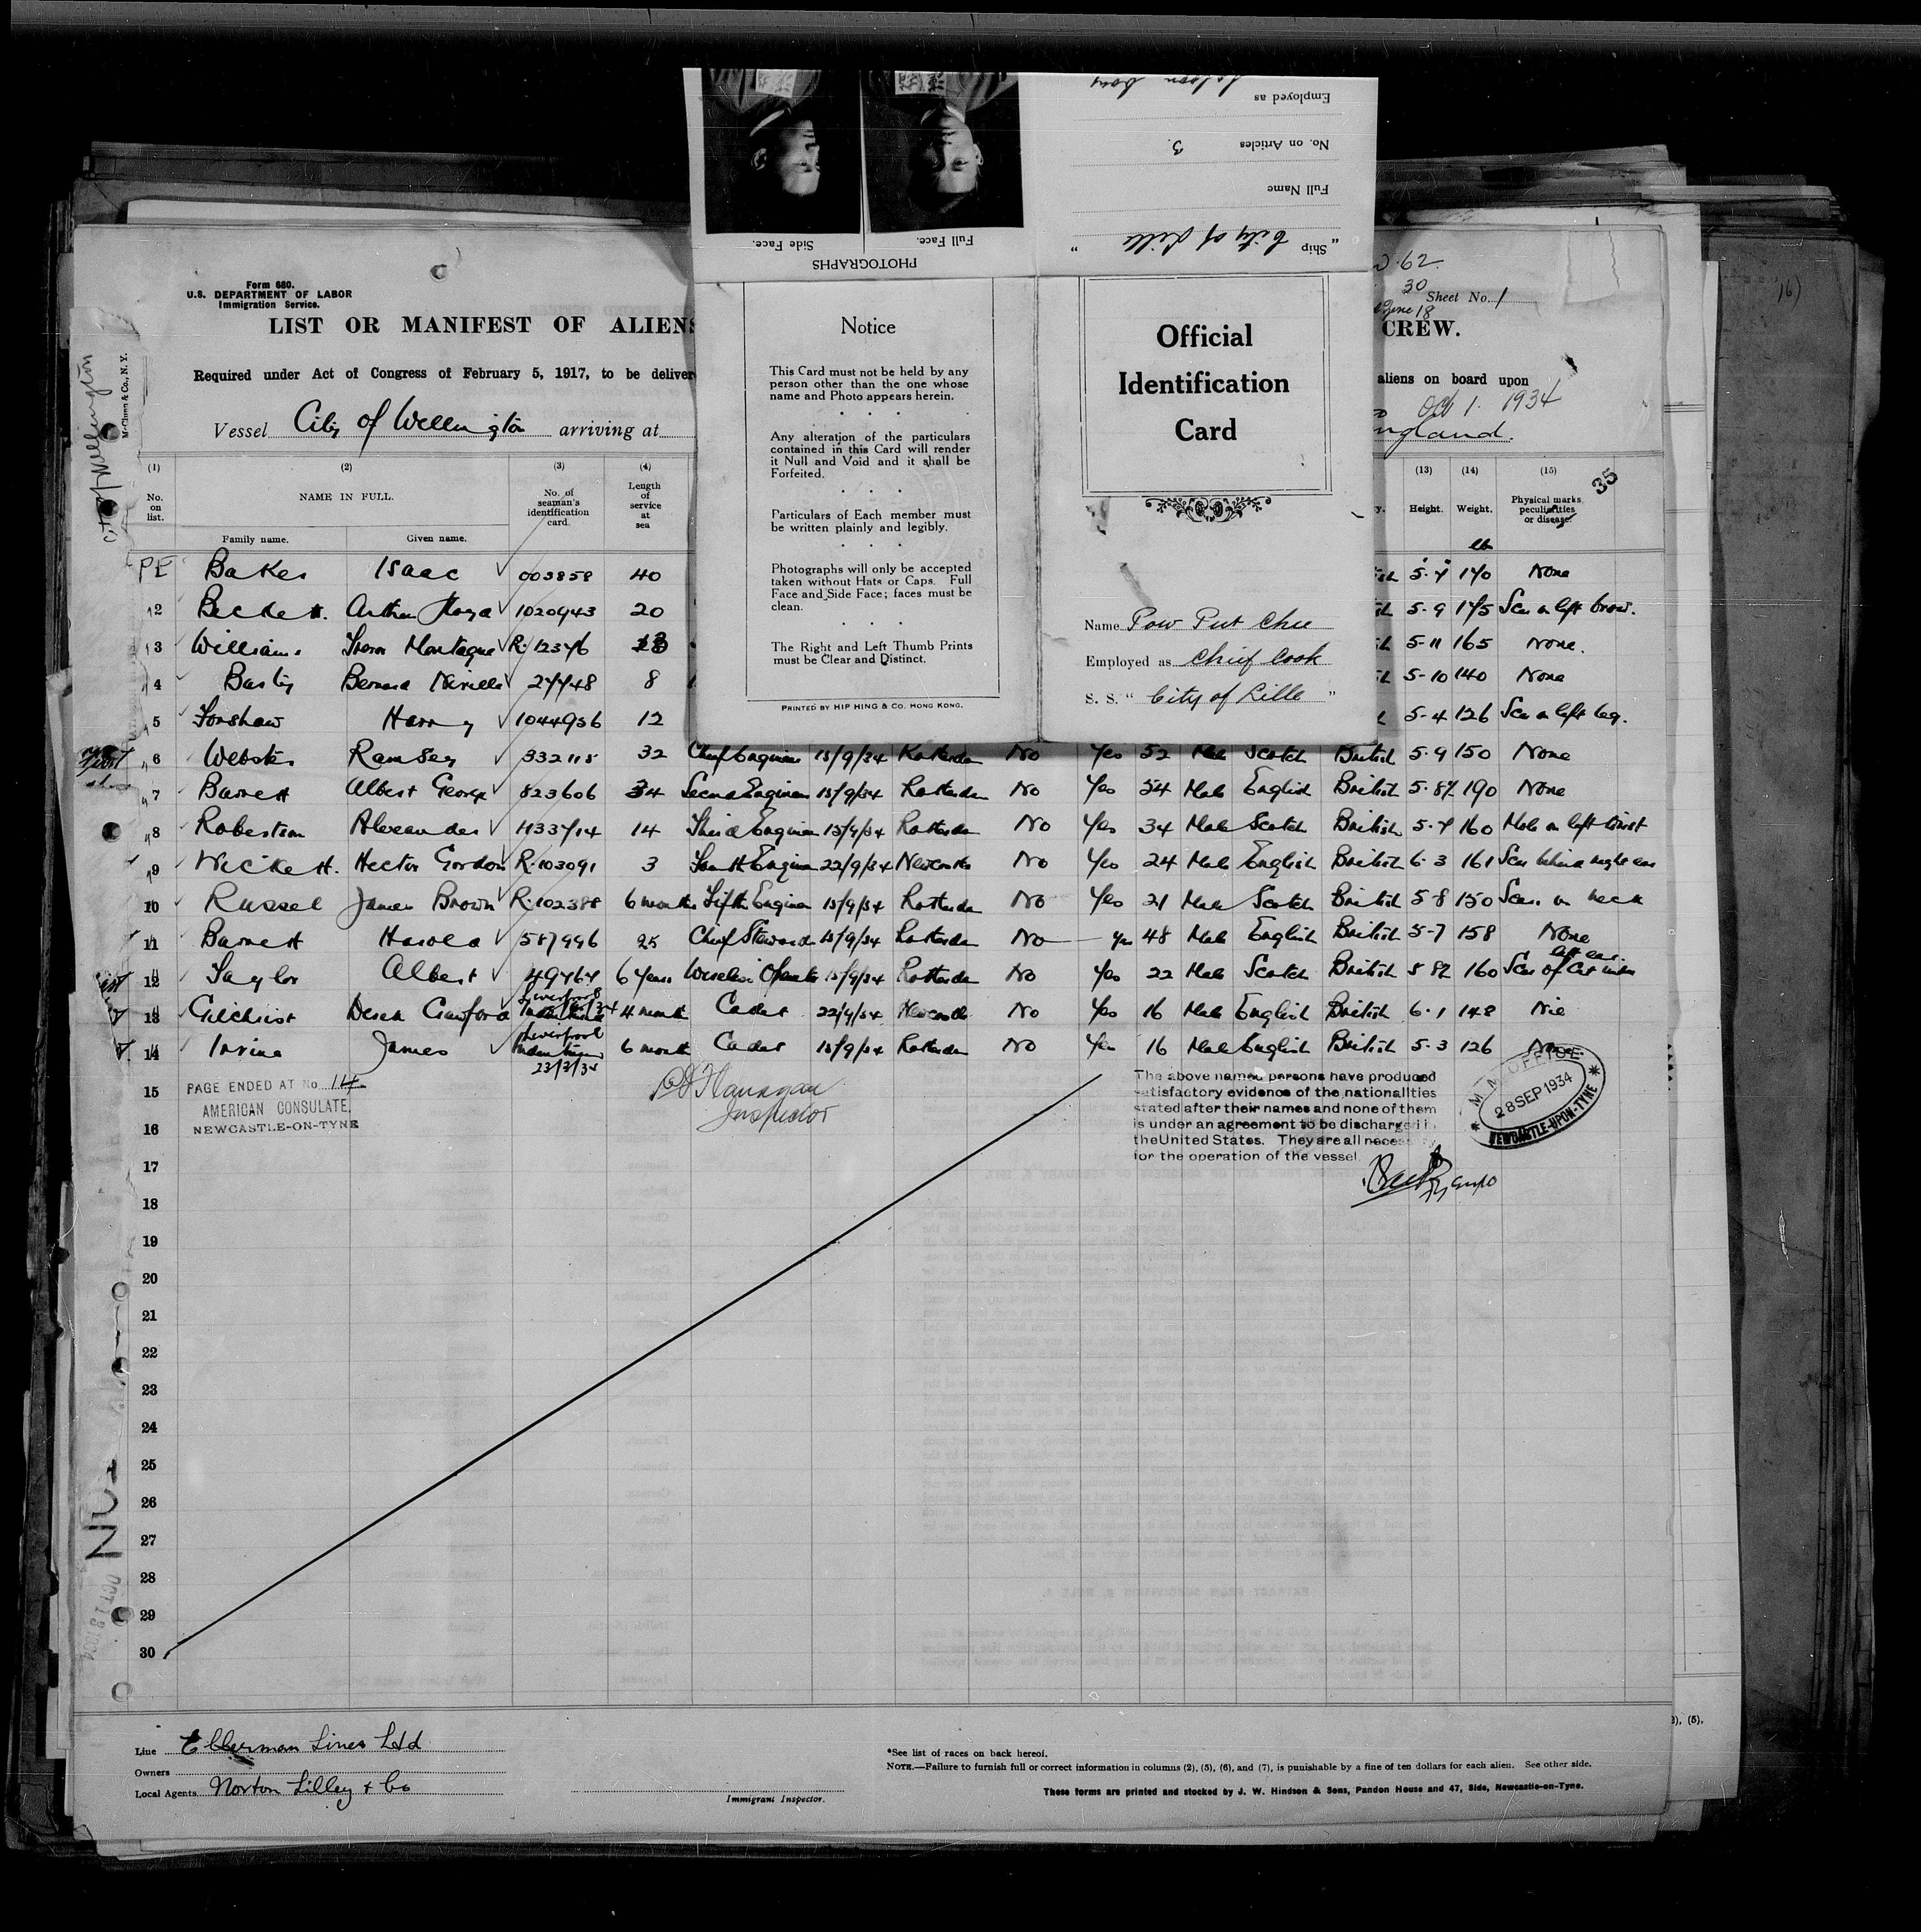 Form 680.
U.S. DEPARTMENT OF LABOR
Immigration Service.
LIST OR MANIFEST OF ALIENS
CREW.
Sheet No. 1
Required under Act of Congress of February 5, 1917, to be deliver
aliens on board upon
Vessel City of Wellington arriving at
Oct 1. 1934
ngland.
McClunn & Co., N. Y.
City of Wellington
35
(1) (2) (3) (4) (13) (14) (15)
No. on list.
NAME IN FULL.
Family name. Given name.
No. of seaman's identification card.
Length of service at sea
Height. Weight. Physical marks, peculiarities or disease.
Isaac 003858 40 5·7 170 None
2 Beckett. Arthur 1020943 20 5-9 175 Scar on left brow.
3 Williams Montague R·12376 5-11 165 None.
4 8 5-10 140 None
5 Forshaw Harry 1044956 12 5-4 126 Scar on left leg.
6 Webster Ramsey 332118 32 Chief Engineer 15/9/34 Rotterdam No Yes 52 Male Scotch British 5·9 150 None
7 Barnett Albert George 823606 34 Second Engineer 15/9/34 Rotterdam No Yes 54 Male English British 5·8½ 190 None
8 Robertson Alexander 1133714 14 Third Engineer 15/9/34 Rotterdam No Yes 34 Male Scotch British 5·7 160 Mole on left wrist
9 Wickett. Hector Gordon R·103091 3 Fourth Engineer 22/9/34 Newcastle No Yes 24 Male English British 6·3 161 Scar behind right ear
10 Russel James Brown R·102388 6 months Fifth Engineer 15/9/34 Rotterdam No Yes 21 Male Scotch British 5-8 150 Scar on neck
11 Barnett Harold 587996 25 Chief Steward 15/9/34 Rotterdam No Yes 48 Male English British 5-7 158 None
12 Taylor Albert 49764 6 Years Wireless Operator 15/9/34 Rotterdam No Yes 22 Male Scotch British 5 8½ 160 Scar of Cut under left ear.
13 Gilchrist Derek Crawford Liverpool Indentures 4 month Cadet 22/9/34 Newcastle No Yes 16 Male English British 6·1 148 Nil
14 Irvine James Liverpool Indentures 6 month Cadet 15/9/34 Rotterdam No Yes 16 Male English British 5·3 126 None
15
16
17
18
19
20
21
22
23
24
25
26
27
28
29
30
PAGE ENDED AT No 14
AMERICAN CONSULATE,
NEWCASTLE-ON-TYNE
Flanagan
Inspector
The above named persons have produced
satisfactory evidence of the nationalities
stated after their names and none of them
is under an agreement to be discharged in
the United States. They are all necessary
for the operation of the vessel.
M.M. OFFICE
28 SEP 1934
NEWCASTLE-UPON-TYNE
Line Ellerman Lines Ltd
Owners
Local Agents Norton Lilley & Co
Immigrant Inspector.
*See list of races on back hereof.
NOTE.—Failure to furnish full or correct information in columns (2), (5), (6), and (7), is punishable by a fine of ten dollars for each alien. See other side.
These forms are printed and stocked by J. W. Hindson & Sons, Pandon House and 47, Side, Newcastle-on-Tyne.
PHOTOGRAPHS
Full Face.
Side Face.
Ship "City of Lille"
Full Name
No. on Articles 3.
Employed as Saloon Boy
Notice
This Card must not be held by any
person other than the one whose
name and Photo appears herein.
Any alteration of the particulars
contained in this Card will render
it Null and Void and it shall be
Forfeited.
Particulars of Each member must
be written plainly and legibly.
Photographs will only be accepted
taken without Hats or Caps. Full
Face and Side Face; faces must be
clean.
The Right and Left Thumb Prints
must be Clear and Distinct.
PRINTED BY HIP HING & CO. HONG KONG.
Official
Identification
Card
Name Pow Put Chee
Employed as Chief Cook
S. S. "City of Lille"